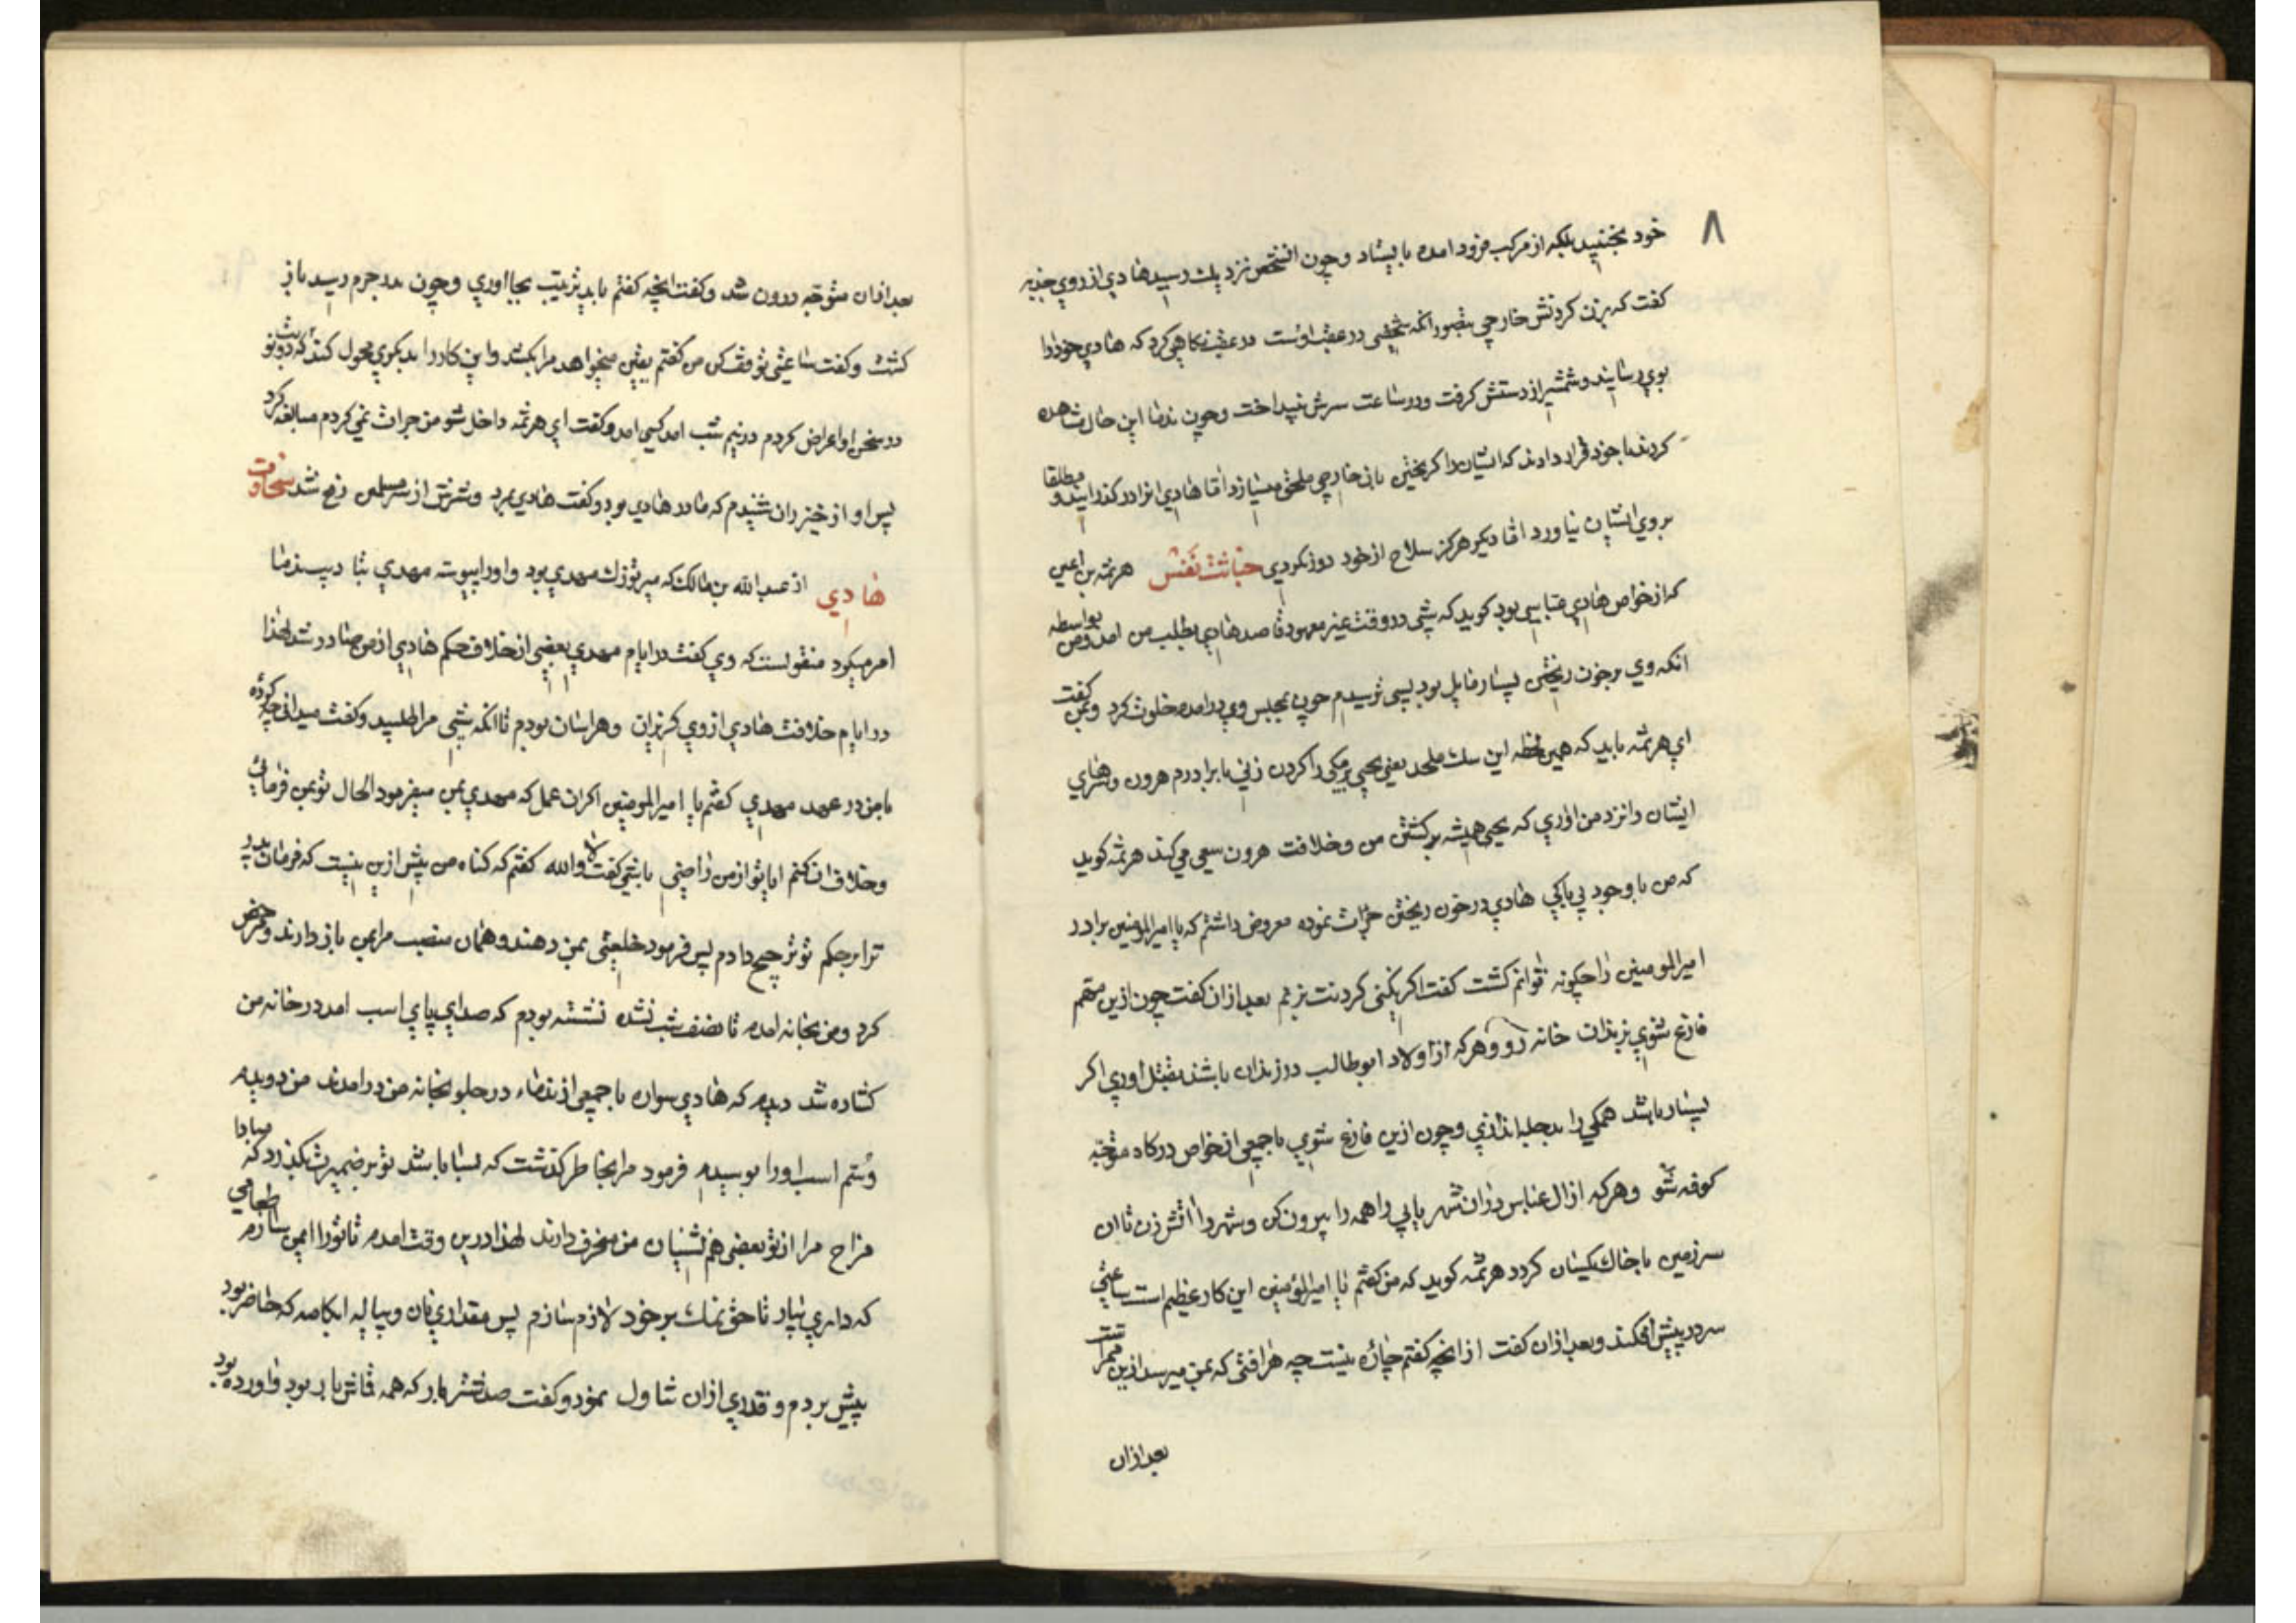 ۸
خود نجنبید بلکه از مرکب فرود امده بایستاد وچون انشخص نزدیك رسید هادي از روي
کفت که بزن کردنش خارجي بتصور انکه شخصی در عقب اوست در عقب نکاهی کرد که هادي خود را
بوي رسانید وشمشیر از دستش کرفت ودر ساعت سرش بینداخت وچون ندما این حال مشاهده
کردند با خود قرار دادند که ایشان را کریختن با خارجي ملحق میسازد اما هادي انرا در کذرانید و مطلقا
بروي ایشان نیاورد اما دیکر هرکز سلاح از خود دور نکردي خباثت نفس هرثمه بن اعین
که از خواص هادي عباسي بود کوید که شبی در وقت غیر معهود قاصد هادي بطلب من امد ومن بواسطه
انکه وي برخون ریختن بسیار مایل بود بسی ترسیدم چون بمجلس وي درامدم خلوت کرد وبمن کفت
اي هرثمه باید که همین لحظه این سك ملحد یعنی یحیی برمکی را کردن زني با برادرم هرون وسرهاي
ایشان را نزد من اوري که یحیی همیشه برکشتن من وخلافت هرون سعی می کند هرثمه کوید
که من با وجود بی باکي هادي در خون ریختن جرات نموده معروض داشتم که یا امیرالمومنین برادر
امیرالمومنین را چکونه توانم کشت کفت اکر نکنی کردنت بزنم بعد ازان کفت چون ازین مهم
فارغ شوي بزندان خانه رو وهرکه از اولاد ابوطالب در زندان باشند بقتل اوري اکر
بسیار باشند همکی را بدجله اندازي وچون ازین فارغ شوي با جمعی از خواص درکاه متوجه
کوفه شو وهرکه از ال عباس دران شهر یابي همه را بیرون کن وشهر را اتش زن تا ان
سرزمین با خاك یکسان کردد هرثمه کوید که من کفتم یا امیرالمؤمنین این کار عظیم است ساعتی
سر در پیش افکند وبعد ازان کفت از انچه کفتم چاره نیست چه هر افتی که بمن میرسد ازین ممر است
بعد ازان
بعد ازان متوجه درون شد وکفت انچه کفتم باید بترتیب بجا اوري وچون بدر حرم رسید باز
کشت وکفت ساعتی توقف کن من کفتم یقین میخواهد مرا بکشد واین کار را بدیکري محول کند که
در سخن او اعراض کردم در نیم شب امد کسی امد وکفت اي هرثمه داخل شو من جرات نمی کردم مبالغه کرد
پس اواز خیزران شنیدم که مادر هادي بود وکفت هادي بمرد وشرش از سر مسلمین رفع شد سخاوت
هادي از عبدالله بن مالك که میر توزك مهدي بود واورا پیوسته مهدي بتادیب ندما
امر میکرد منقولست که وي کفت در ایام مهدي بعضی از خلاف حکم هادي از من صادر شد لهذا
در ایام خلافت هادي از وي کریزان وهراسان بودم تا انکه شبی مرا طلبید وکفت میدانی چه کردۀ
با من در عهد مهدي کفتم یا امیرالمومنین اکر ان عمل که مهدي بمن میفرمود الحال تو بمن فرمائي
وخلاف ان کنم ایا تو از من راضی باشی کفت لا والله کفتم که کناه من بیش ازین نیست که فرمان پدر
ترا بر حکم تو ترجیح دادم پس فرمود خلعتی بمن دهند وهمان منصب مرا بمن باز دارند ومرخص
کرد ومن بخانه امدم تا نصف شب نشده نشسته بودم که صداي پاي اسب امد در خانه من
کشاده شد دیدم که هادي سواره با جمعی از ندماء در جلو بخانه من درامدند من دویدم
وسم اسب اورا بوسیدم فرمود مرا بخاطر کذشت که بسا باشد تو بر ضمیرت بکذرد که مبادا
مزاج مرا از تو بعضی همنشینان من منحرف دارند لهذا درین وقت امدم تا تورا ایمن سازم طعامي
که داري بیار تا حق نمك بر خود لازم سازم پس مقداري نان وپیاله ابکامه که حاضر بود
پیش بردم وقدري ازان تناول نمود وکفت صد شتر بار که همه قماش بار بود واورده بود